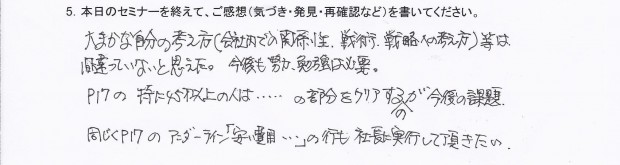 5. 本日のセミナーを終えて、ご感想（気づき・発見・再確認など）を書いてください。
大まかな自分の考え方(会社内での関係性、戦術、戦略への考え方)等は
間違っていないと思えた。今後も努力、勉強は必要。
P17の 特に45才以上の人は…… の部分をクリアするのが今後の課題.
同じくP17の アンダーライン「安い費用…」の行も 社長に実行して頂きたい.